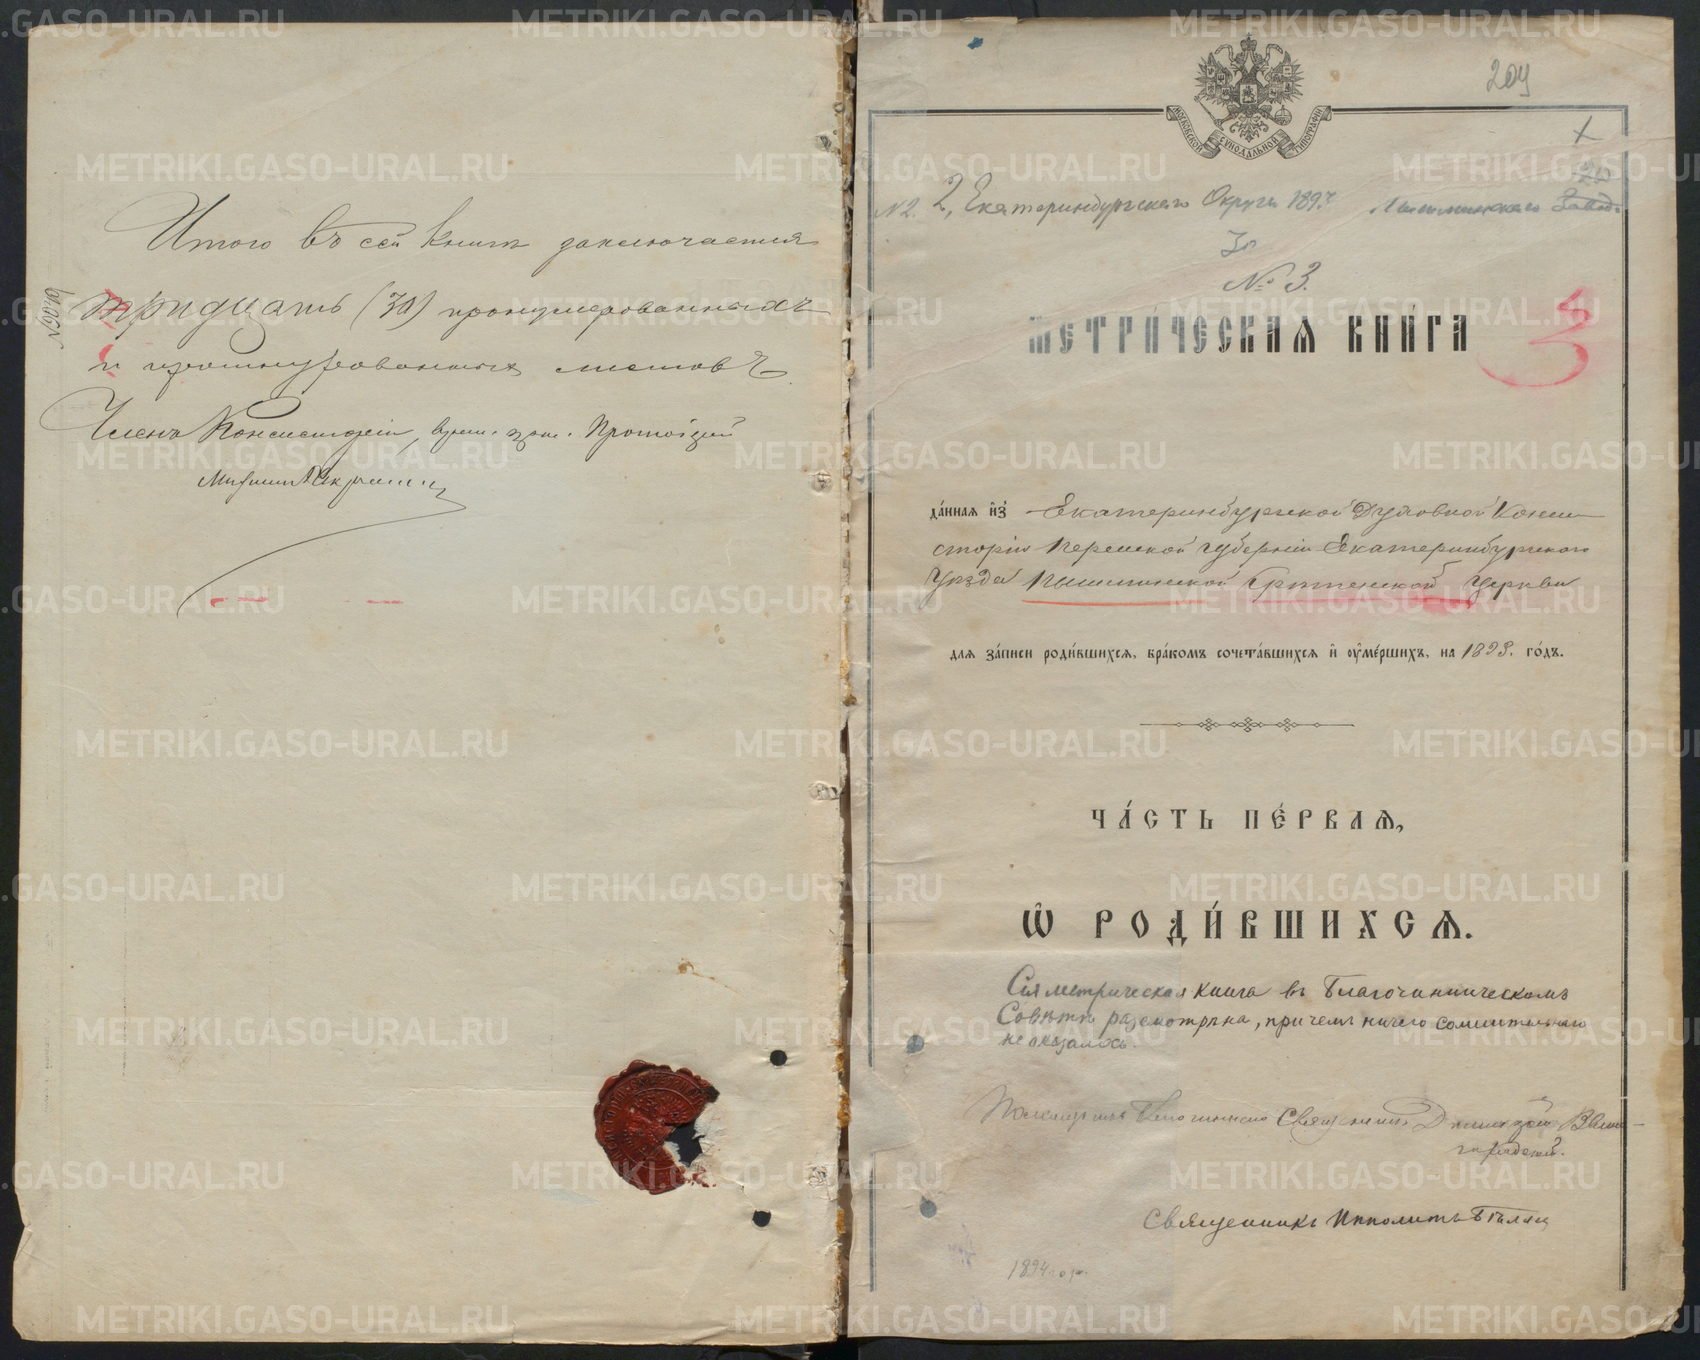 Итого въ сей книгѣ заключается
тридцать (30) пронумерованныхъ
и прошнурованныхъ листовъ
Членъ Консисторіи, Протоіерей
МОСКОВСКОЙ СѴНОДАЛЬНОЙ ТИПОГРАФІИ
204
№ 2. 2, Екатеринбургскаго Округа 1893 Пышминскаго Завод.
№ 3.
МЕТРИ́ЧЕСКАѦ КНИ́ГА
3
да́нная и҆з̾ Екатеринбургской Духовной Конси
сторіи Пермской губерніи Екатеринбургскаго
уѣзда Пышминской Срѣтенской церкви
для за́писи роди́вшихсѧ, бра́комъ сочета́вшихсѧ и҆ ᲂу҆ме́ршихъ, на 1893. го́дъ.
ЧА́СТЬ ПЕ́РВАѦ,
Ѽ РОДИ́ВШИХСѦ.
Сія метрическая книга въ Благочинническомъ
Совѣтѣ разсмотрѣна, причемъ ничего сомнительнаго
не оказалось.
Помощникъ Благочиннаго Священникъ
Священникъ Ипполитъ
1894 года.
METRIKI.GASO-URAL.RU